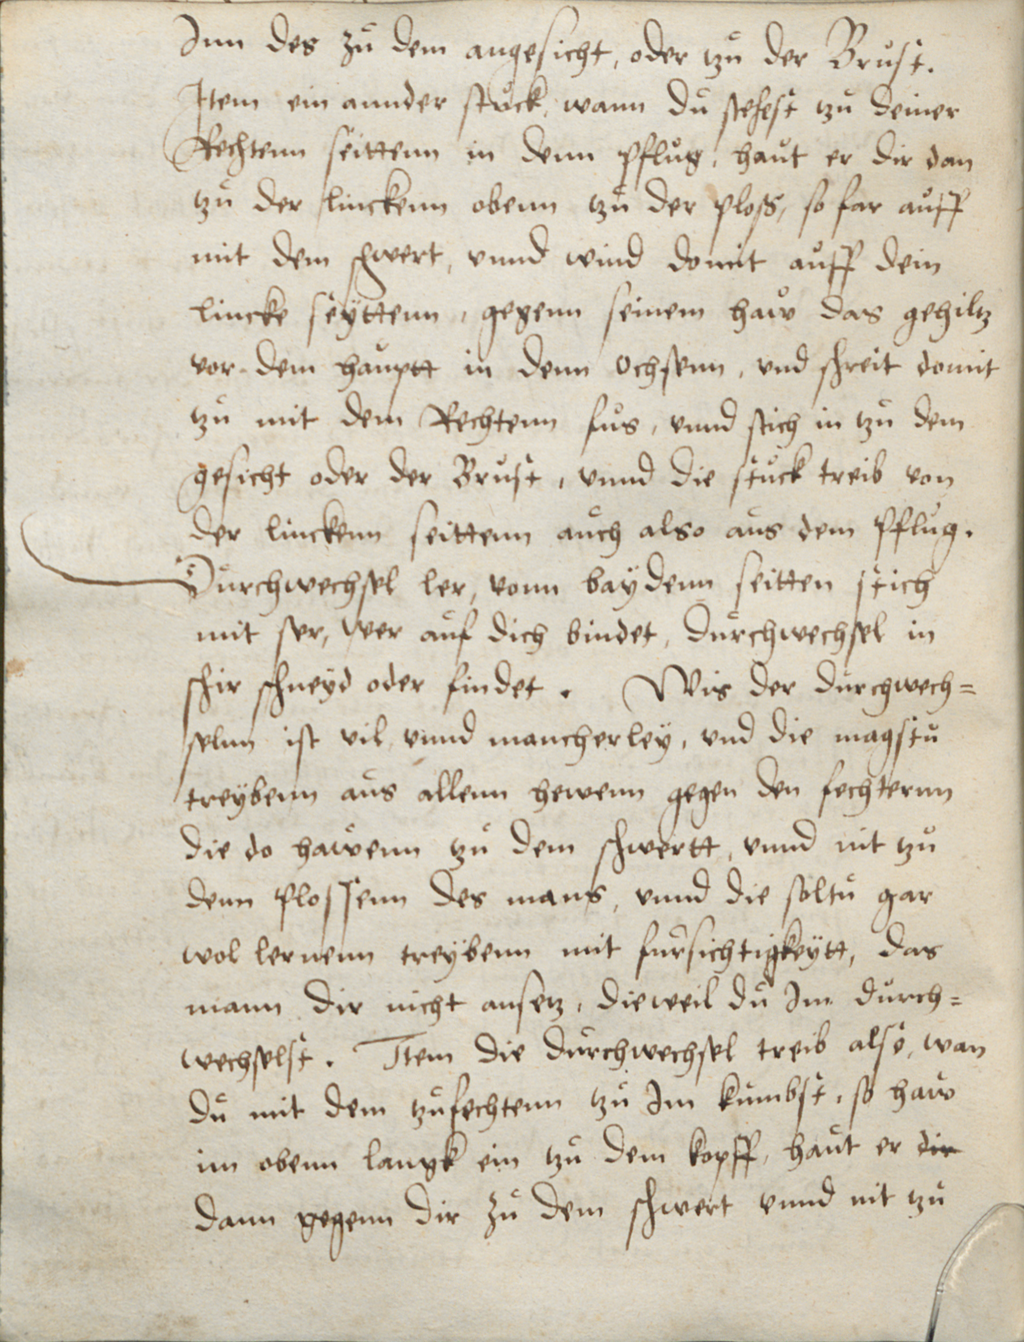 Inn des zů dem angesicht, oder tzů der Brust.
Item ein annder stůck, wann dů stehest tzů deiner
Rechtenn seittenn in denn pflůg, haut er dir dan
tzů der linckenn obenn tzů der plosß, so far aůff
mit dem schwert, vnnd wind domit aůff dein
lincke seÿttenn, gegenn seinem haw das gehiltz
vor dem haůptt in denn ochsenn, vnd schreit domit
tzů mit dem Rechtenn fůs, vnnd stich in tzů dem
gesicht oder der Brůst, vnnd die stůck treib von
der linckenn seittenn aůch also aůs dem Pflůg.
Důrchwechsel ler, vonn baydenn seitten stich
mit ser, Wer aůf dich bindet, důrchwechsel in
schir schneyd oder findet. Wis der důrchwech=
selnn ist vil vnnd mancherleÿ, vnd die magstů
treÿbenn aůs allenn hewenn gegen den fechternn
die do hawenn tzů dem schwertt, vnnd nit tzů
denn plossenn des mans, vnnd die soltů gar
wol lernenn treÿbenn mit fůrsichtigkeÿtt, das
mann dir nicht ansetz, dieweil dů Im důrch=
wechselst. Item die důrchwechsel treib also, wan
dů mit dem tzůfechtenn tzů Im kůmbst, so haw
im obenn langk ein tzů dem kopff, haůt er dir
dann gegenn dir zů dem schwert vnnd nit tzů